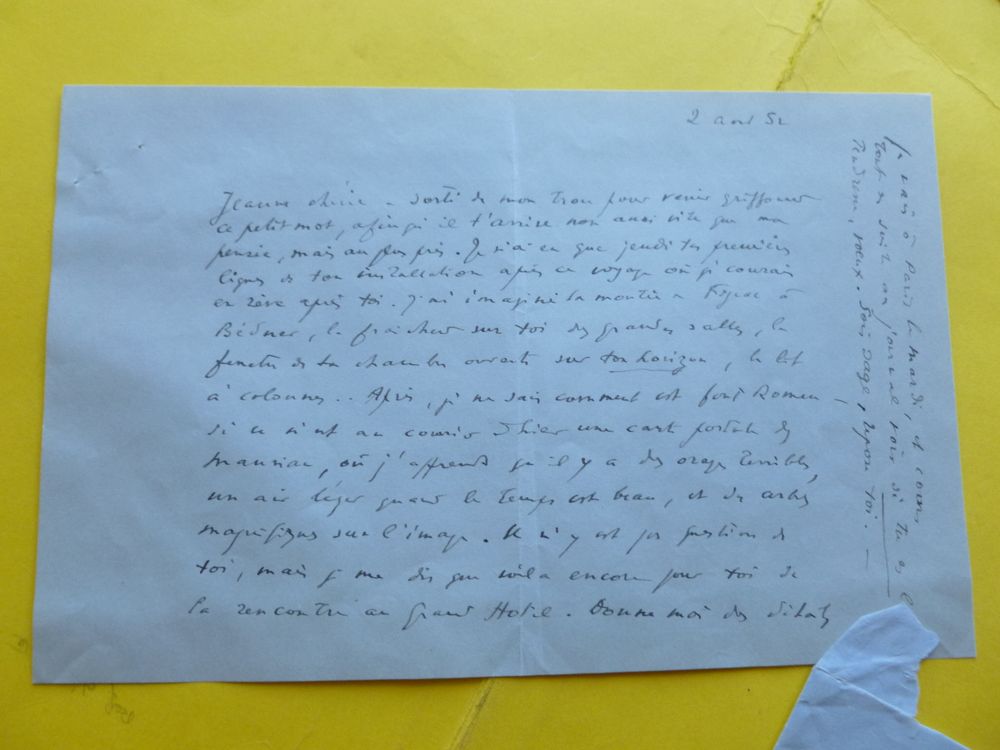 2 aout 52
Jeanne chérie - sorti de mon trou pour venir griffonner
ce petit mot, afin qu'il t'arrive non aussi vite que ma
pensée, mais au plus près. Je n'ai eu que jeudi tes premières
lignes de ton installation après ce voyage où je courais
en rêve après toi. J'ai imaginé la montée à Figeac à
Béduer, la fraîcheur sur toi des grandes salles, la
fenêtre de ta chambre ouverte sur ton horizon, le lit
à colonnes.. Après, je ne sais comment est fout Romeu
si ce n'est au courrier d'hier une carte postale de
Mauriac, où j'apprends qu'il y a des orages terribles,
un air léger quand le temps est beau, et des arbres
magnifiques sur l'image. Il n'y est pas question de
toi, mais je me dis que voilà encore pour toi de
la rencontre au Grand Hotel. Donne moi des détails
Je vais à Paris le mardi, et cours
tout de suite au journal voir si tu es
Tendresse, voeux. Sois sage, repose toi. -